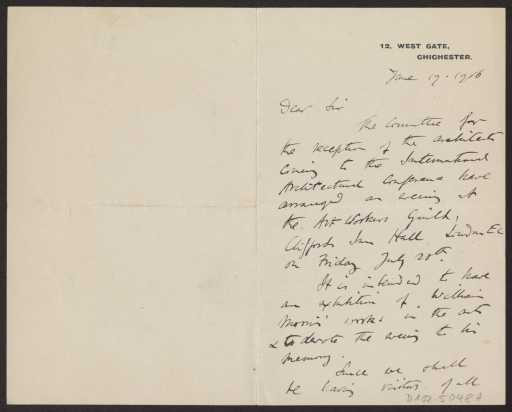 12, WEST GATE,
CHICHESTER.
June 19. 1906
Dear Sir
The Committee for
the reception of the architects
coming to the International
Architectural Conference have
arranged an evening at
the Art Workers Guild,
Cliffords Inn Hall, London EC
on Friday July 20th.
It is intended to have
an exhibition of William
Morris' works in the arts
& to devote the evening to his
memory.
Since we shall
be having visitors of all